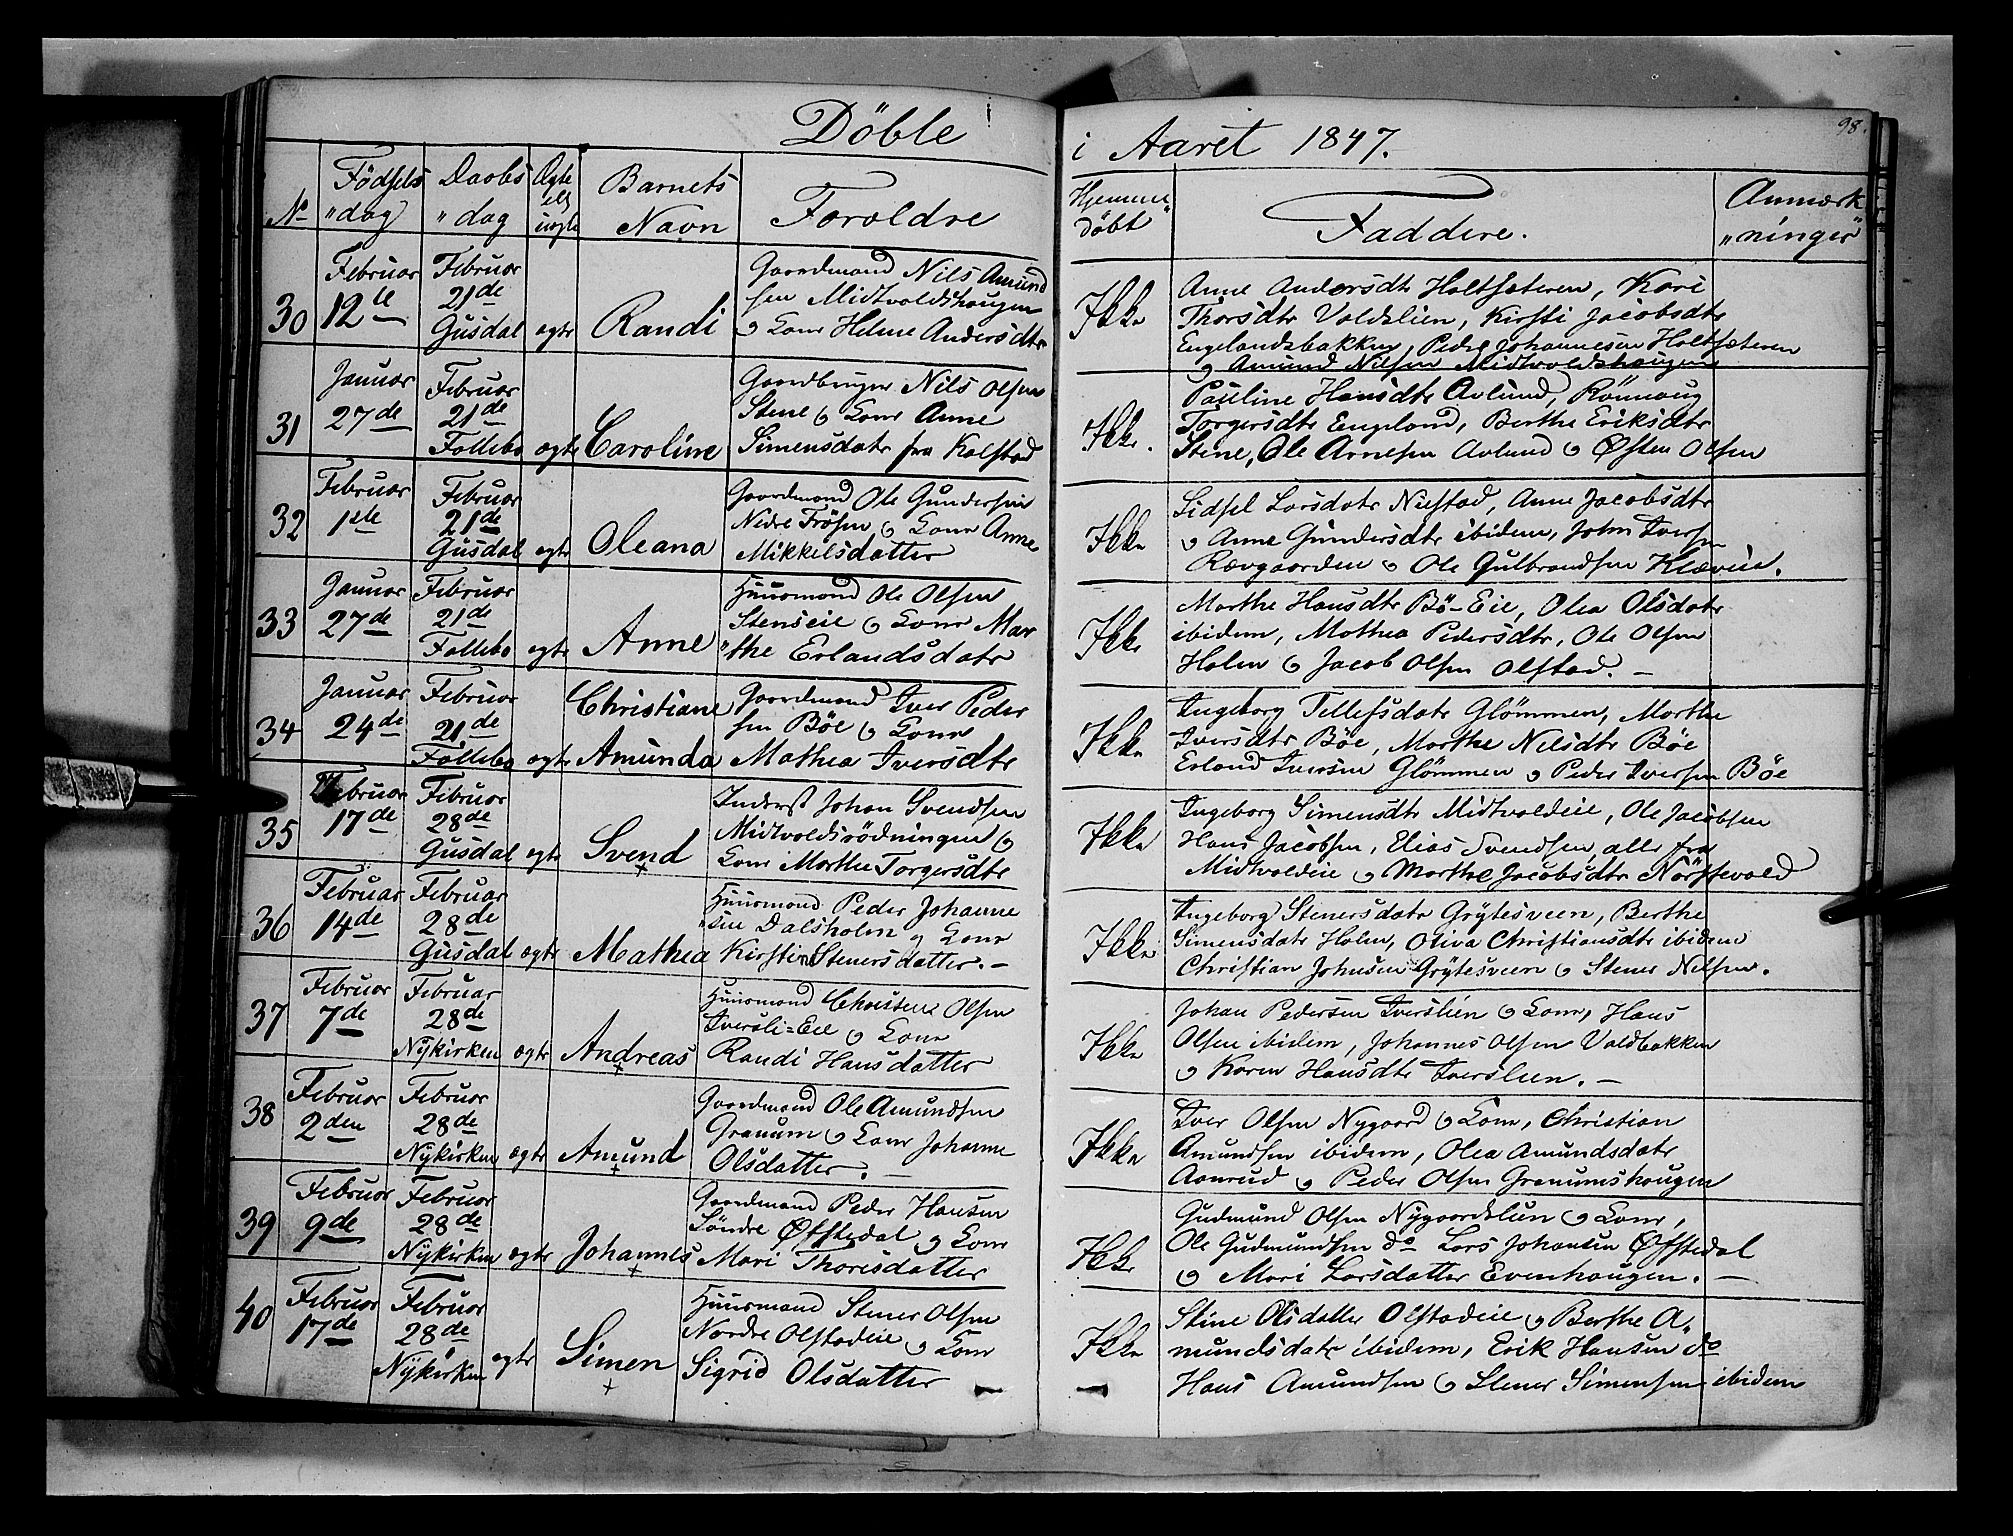 Döbte
i Aaret 1847.
98.
No
Födsels
"dag
Daabs
"dag
Ægte
ell
uægte
Barnets
Navn
Foræeldre
Hjemme"
döbt
Faddere.
Anmærk
"ninger
30
Februar
12te
Februar
21de
Gusdal
ægte
Randi
Gaardmand Nils Amund
sen Midtvoldshaugen
og Kone Helene Andersdtr
Ikke
Anne Andersdtr Holtsæteren, Kari
Thorsdtr Voldslien, Kirsti Jacobsdtr
Engelandsbakken, Peder Johannesen Holtsæteren
og Amund Nilsen Midtvoldshaugen
31
Januar
27de
Februar
21de
Follebo
ægte
Caroline
Gaardbruger Nils Olsen
Stene og Kone Anne
Simensdatr fra Kalstad
Ikke.
Pauline Hansdtr Avlund, Rönnaug
Torgersdtr Engeland, Berthe Eriksdtr
Stene, Ole Arnesen Avlund og Østen Olsen
32
Februar
1ste
Februar
21de
Gusdal
ægte
Oleana
Gaardmand Ole Gundersen
Nedre Frösen og Kone Anne
Mikkelsdatter
Ikke
Sidsel Larsdatr Niestad, Anne Jacobsdtr
og Anne Gundersdtr ibidem, John Iversen
Rævgaarden og Ole Gulbrandsen Klævie.
33
Januar
27de
Februar
21de
Follebo
ægte
Anne
Huusmand Ole Olsen
Stenseie og Kone Mar
"the Erlandsdatr
Ikke
Marthe Hansdtr Bö-Eie, Olea Olsdatr
ibidem, Mathea Pedersdtr, Ole Olsen
Holen og Jacob Olsen Olstad. —
34
Januar
24de
Februar
21de
Follebo
ægte
Christiane
Amunda
Gaardmand Iver Peder
sen Böe og Kone
Mathea Iversdtr
Ikke
Ingeborg Tellefsdatr Glömmen, Marthe
Iversdtr Böe, Marthe Nilsdtr Böe
Erland Iversen Glömmen og Peder Iversen Böe
35
Februar
17de
Februar
28de
Gusdal
ægte
Svend
+
Inderst Johan Svendsen
Midtvoldsrödningen og
Kone Marthe Torgersdtr
Ikke
Ingeborg Simensdtr Midtvoldeie, Ole Jacobsen
Hans Jacobsen, Elias Svendsen, alle fra
Midtvoldeie og Marthe Jacobsdtr Nörstevold
36
Februar
14de
Februar
28de
Gusdal
ægte
Mathea
Huusmand Peder Johanne
"sen Dalsholm og Kone
Kirstin Stenersdatter. —
Ikke
Ingeborg Stenersdatr Grytesveen, Berthe
Simensdatr Holen, Oliva Christiansdtr ibidem
Christian Johnsen Grytesveen og Stener Nilsen.
37
Februar
7de
Februar
28de
Nykirken
ægte
Andreas
+
Huusmand Christen Olsen
Iversli=Eie og Kone
Randi Hansdatter
Ikke
Johan Pedersen Iverslien og Kone, Hans
Olsen ibidem, Johannes Olsen Voldbakken
og Karen Hansdtr Iverslien. —
38
Februar
2den
Februar
28de
Nykirken
ægte
Amund
+
Gaardmand Ole Amundsen
Granum og Kone Johanne
Olsdatter. —
Ikke
Iver Olsen Nygaard og Kone, Christian
Amundsen ibidem, Olea Amundsdatr
Aanrud og Peder Olsen Granumshaugen
39
Februar
9de
Februar
28de
Nykirken
ægte
Johannes
+
Gaardmand Peder Hansen
Söndre Øfstedal og Kone
Mari Thorisdatter
Ikke
Gudmund Olsen Nygaardslien og Kone,
Ole Gudmundsen do Lars Johansen Øfstedal
og Mari Larsdatter Evenhaugen. —
40
Februar
17de
Februar
28de
Nykirken
ægte
Simen
+
Huusmand Stener Olsen
Nordre Olstadeie og Kone
Sigrid Olsdatter
Ikke
Stine Olsdatter Olstadeie og Berthe A.
mundsdatr ibidem, Erik Hansen do
Hans Amundsen og Stener Simensen ibidem